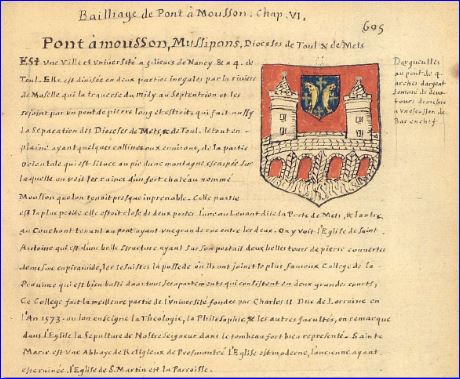 Bailliage de Pont à Mousson. Chap. VI.
605
Pont à mousson, Mussipons, Dioceses de Toul & de Mets
Est une Ville et Université a 5 lieues de Nancy, & a 4. de
Toul. Elle est divisée en deux parties inegales par la riviere
de Moselle qui la traverse du Midy au Septentrion et les
rejoint par un pont de pierre long et estroit, qui fait aussy
la separation des Dioceses de Mets, & de Toul. le tout en
plaine ayant quelques collines aux environs, de la partie
Orientale qui est située au pié d'une montagne escarpée sur
laquelle on voit les ruines d'un fort chateau nommé
Mousson que l'on tenoit presque imprenable. Celle partie
est la plus petite elle est close de deux portes l'une au Levant dite la Porte de Mets, & l'autre
au Couchant tenant au pont ayant une grande rue entre les deux. On y voit l'Eglise de Saint
Antoine qui est d'une belle structure ayant sur son portail deux belles tours de pierre couvertes
de mesme en piramide, les Jesuistes la possede où ils ont joint le plus fameux College de la
Province qui est bien basti dans tous ses apartements qui consistent en deux grandes courts,
Ce College fait la meilleure partie de l'Université fondée par Charles II Duc de Lorraine en
l'An 1573 - ou l'on enseigne la Theologie, la Philosophie & les autres facultés, on remarque
dans l'Eglise la Sepulture de Nostre Seigneur dans le tombeau fort bien representé - Sainte
Marie est une Abbaye de Religieux de Premontré l'Eglise est moderne, l'ancienne ayant
esté ruinée. l'Eglise de S. Martin est la Paroisse.
De gueulles
au pont de 4.
arches d'argent
sommé de deux
tours de mesme
a un ecusson de
Bar en chef